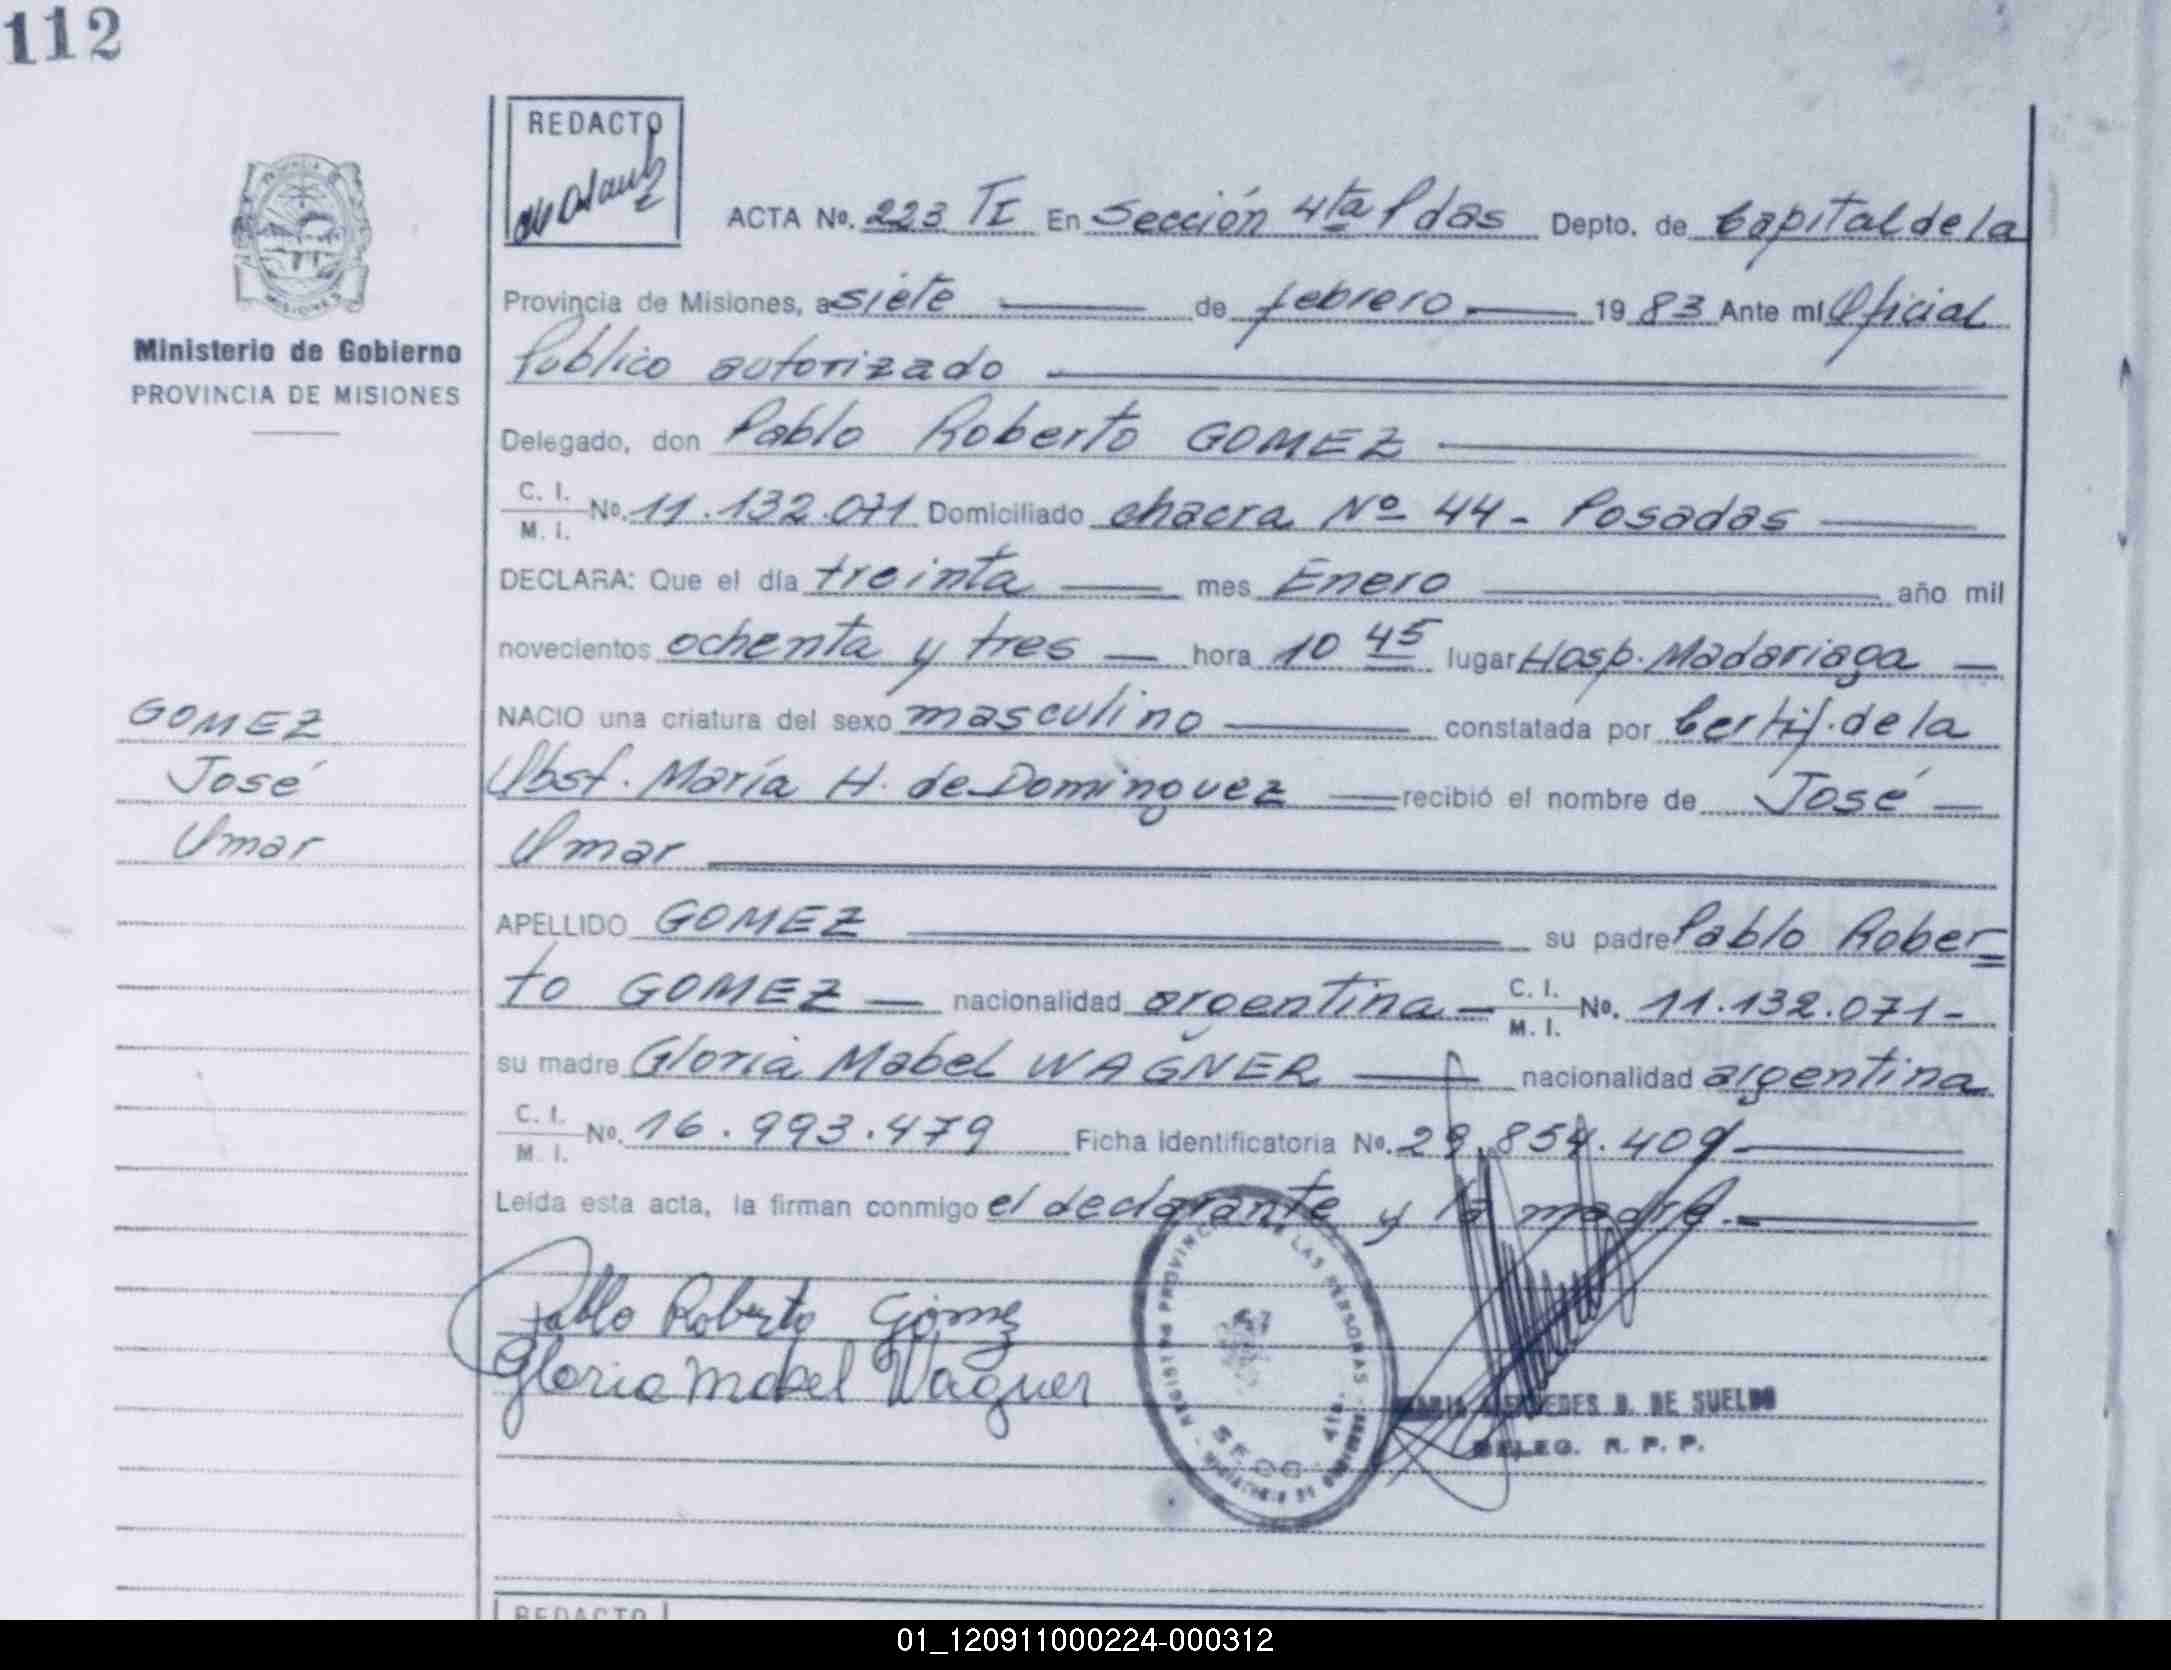 112
REDACTO
ACTA Nº. 223 TI En Sección 4ta Pdas Depto. de Capital de la
Provincia de Misiones, a siete de febrero 1983 Ante mí Oficial
Ministerio de Gobierno
PROVINCIA DE MISIONES
Público autorizado
Delegado, don Pablo Roberto GOMEZ
C. I.
M. I. Nº. 11.132.071 Domiciliado chacra Nº 44 - Posadas
DECLARA: Que el día treinta mes Enero año mil
novecientos ochenta y tres hora 10 45 lugar Hosp. Madariaga
GOMEZ
José
Omar
NACIO una criatura del sexo masculino constatada por Certif. de la
Obst. María H. de Dominguez recibió el nombre de José
Omar
APELLIDO GOMEZ su padre Pablo Rober
to GOMEZ nacionalidad argentina C. I.
M. I. Nº. 11.132.071-
su madre Gloria Mabel WAGNER nacionalidad argentina
C. I.
M. I. Nº. 16.993.479 Ficha Identificatoria Nº. 29.854.409
Leida esta acta, la firman conmigo el declarante y la madre.
Pablo Roberto Gómez
Gloria Mabel Wagner
REGISTRO PROVINC DE LAS PERSONAS
SECC 4ta.
MARIA MERCEDES D. DE SUELDO
DELEG. R. P. P.
REDACTO
01_120911000224-000312